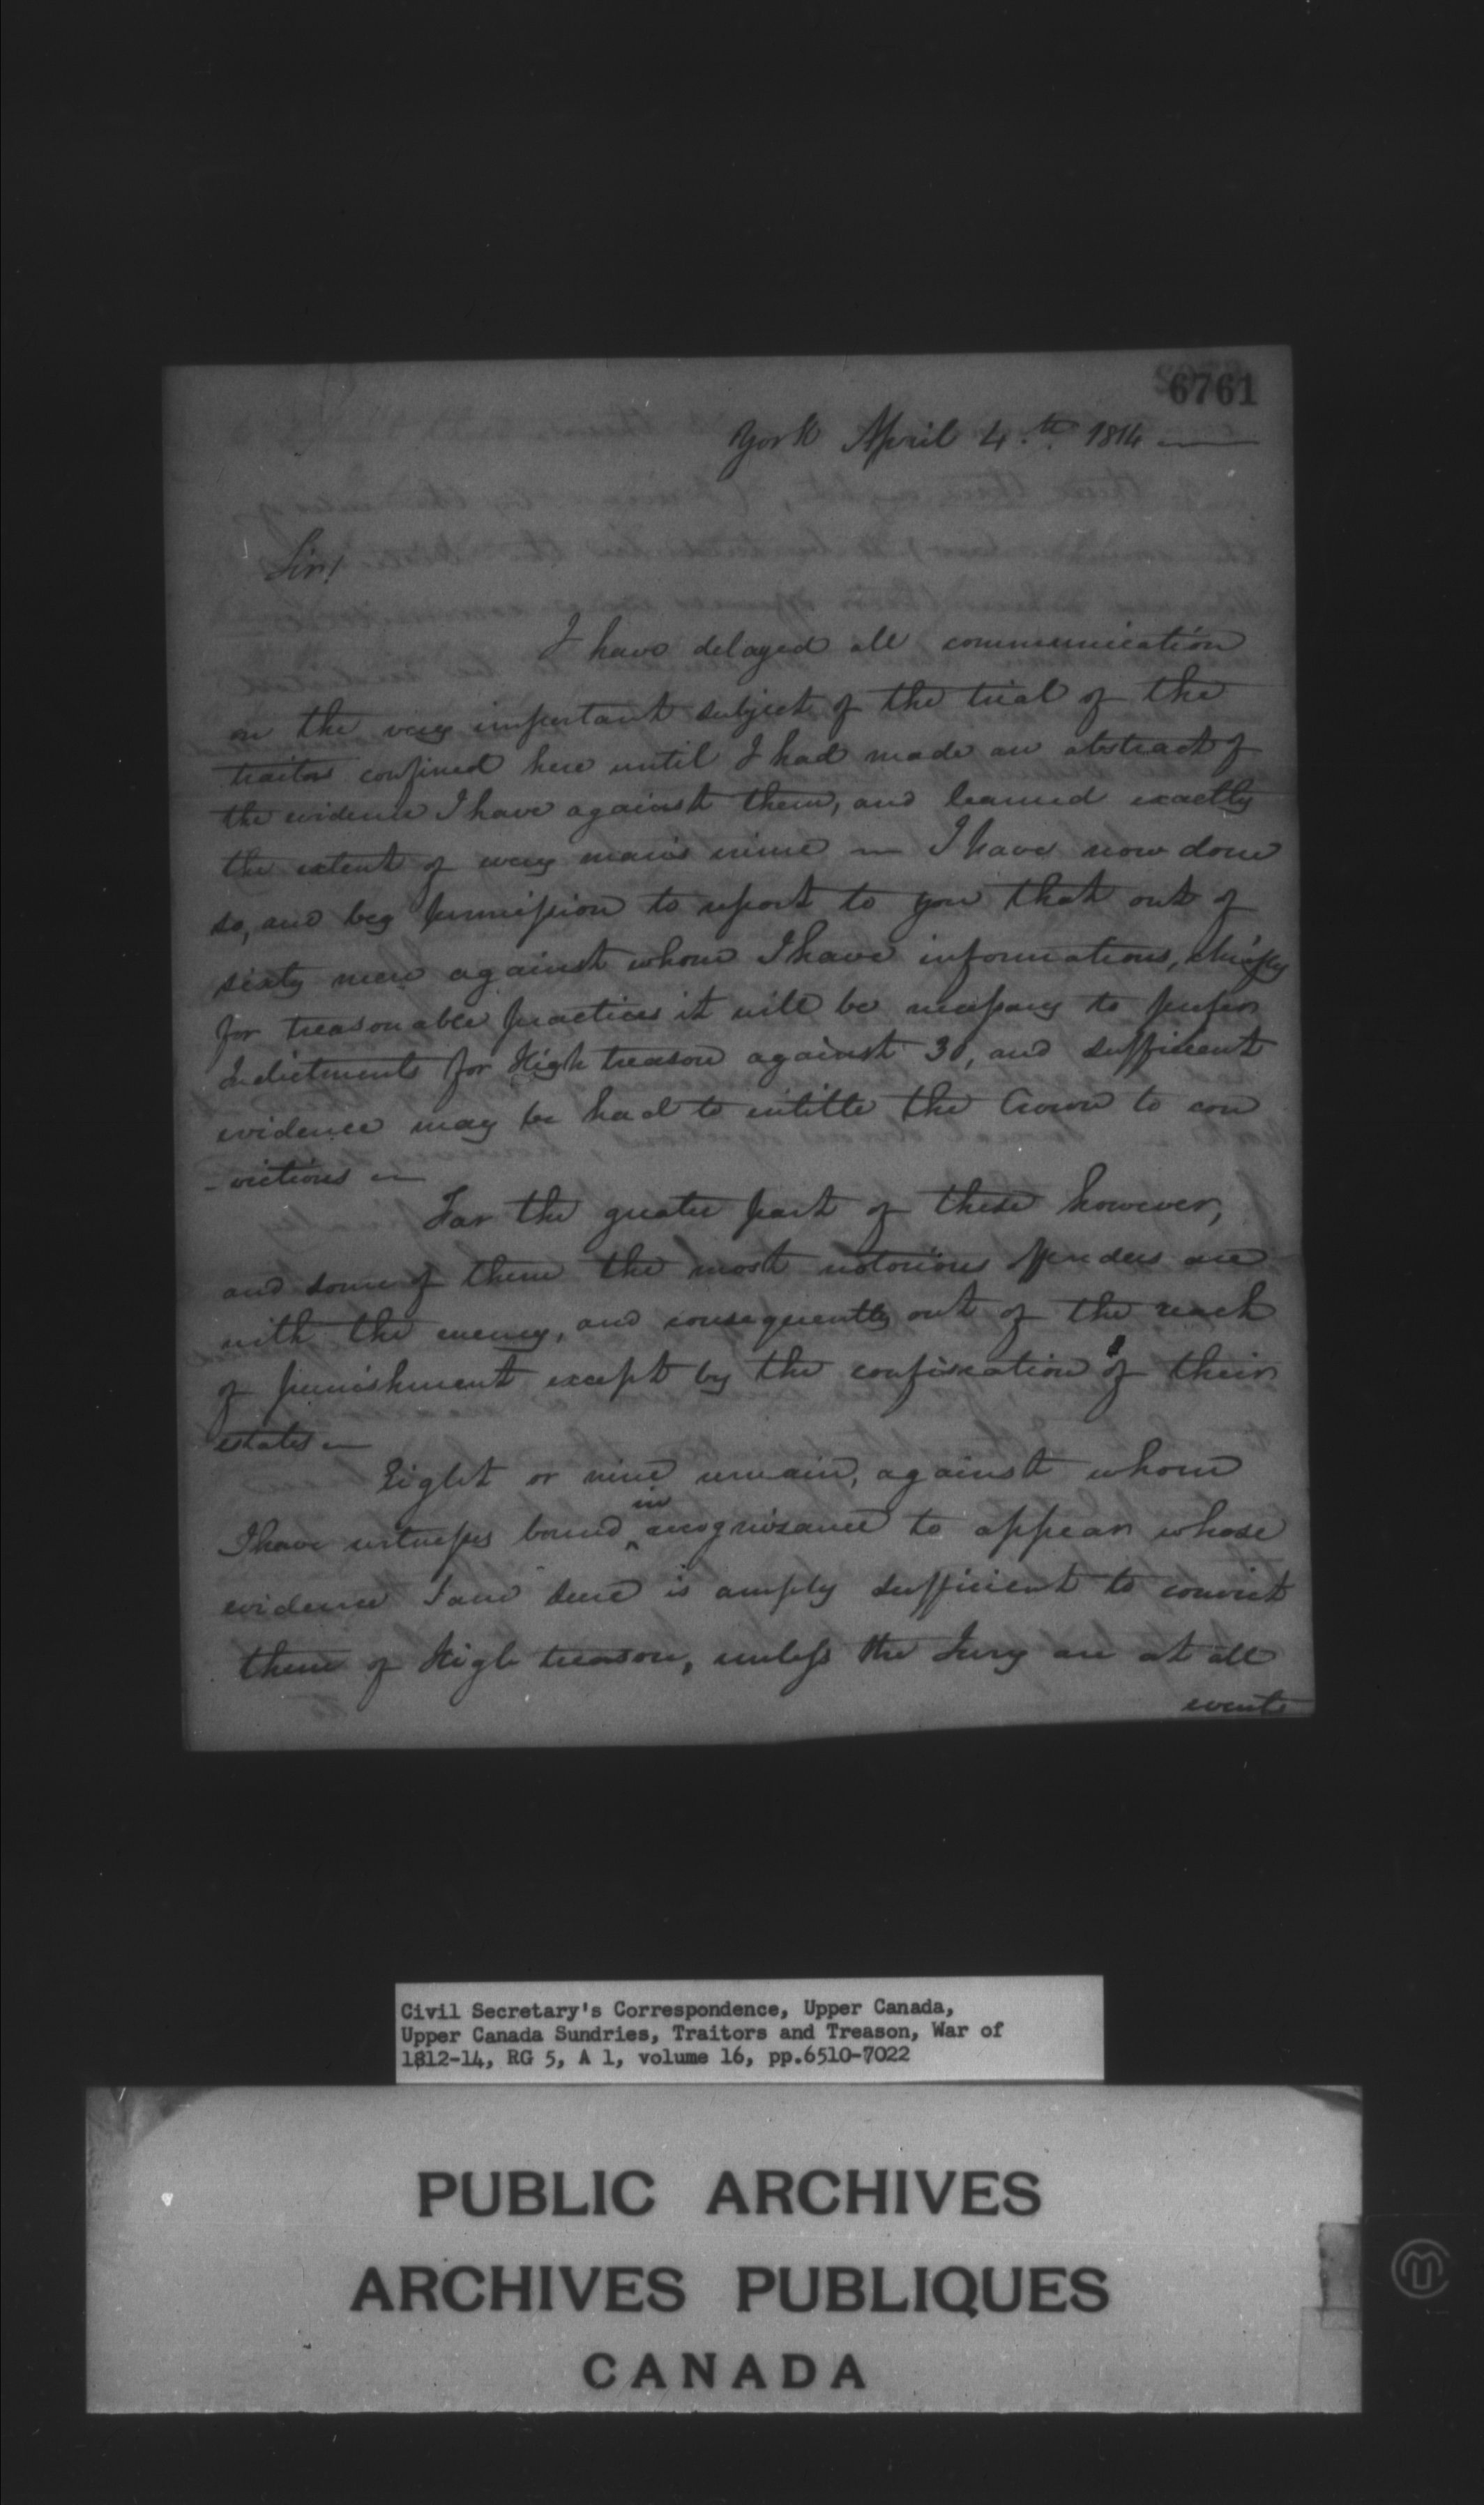 6761
York April 4.th 1814
Sir!
I have delayed all communication
on the very important subject of the trial of the
traitors confined here until I had made an abstract of
the evidence I have against them, and learned exactly
the extent of every man's crime — I have now done
so, and beg permission to report to you that out of
sixty men against whom I have informations, chiefly
for treasonable practices it will be necessary to prefer
Indictments for High treason against 30, and sufficient
evidence may be had to entitle the Crown to con
-victions —
Far the greater part of these however,
and some of them the most notorious offenders are
with the enemy, and consequently out of the reach
of punishment except by the confiscation of their
estates —
Eight or nine remain, against whom
in
I have witnesses bound ‸ recognizance to appear whose
evidence I am sure is amply sufficient to convict
them of High treason, unless the Jury are at all
events
Civil Secretary's Correspondence, Upper Canada,
Upper Canada Sundries, Traitors and Treason, War of
1812-14, RG 5, A 1, volume 16, pp.6510-7022
PUBLIC ARCHIVES
ARCHIVES PUBLIQUES
CANADA